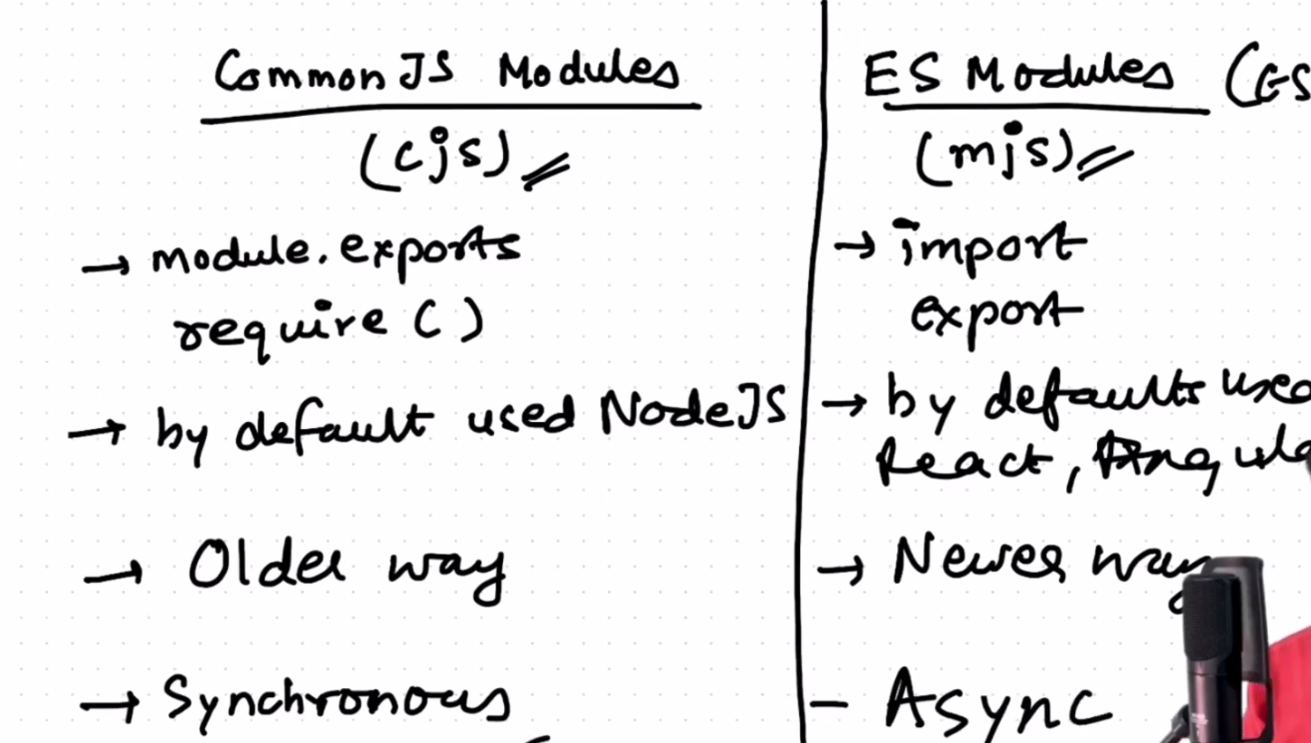 CommonJS Modules
(cjs)
→ module.exports
require ()
→ by default used NodeJS
→ Older way
→ Synchronous
ES Modules
(mjs)
→ import
export
→ by defaults
React,
→ Newer way
- Async